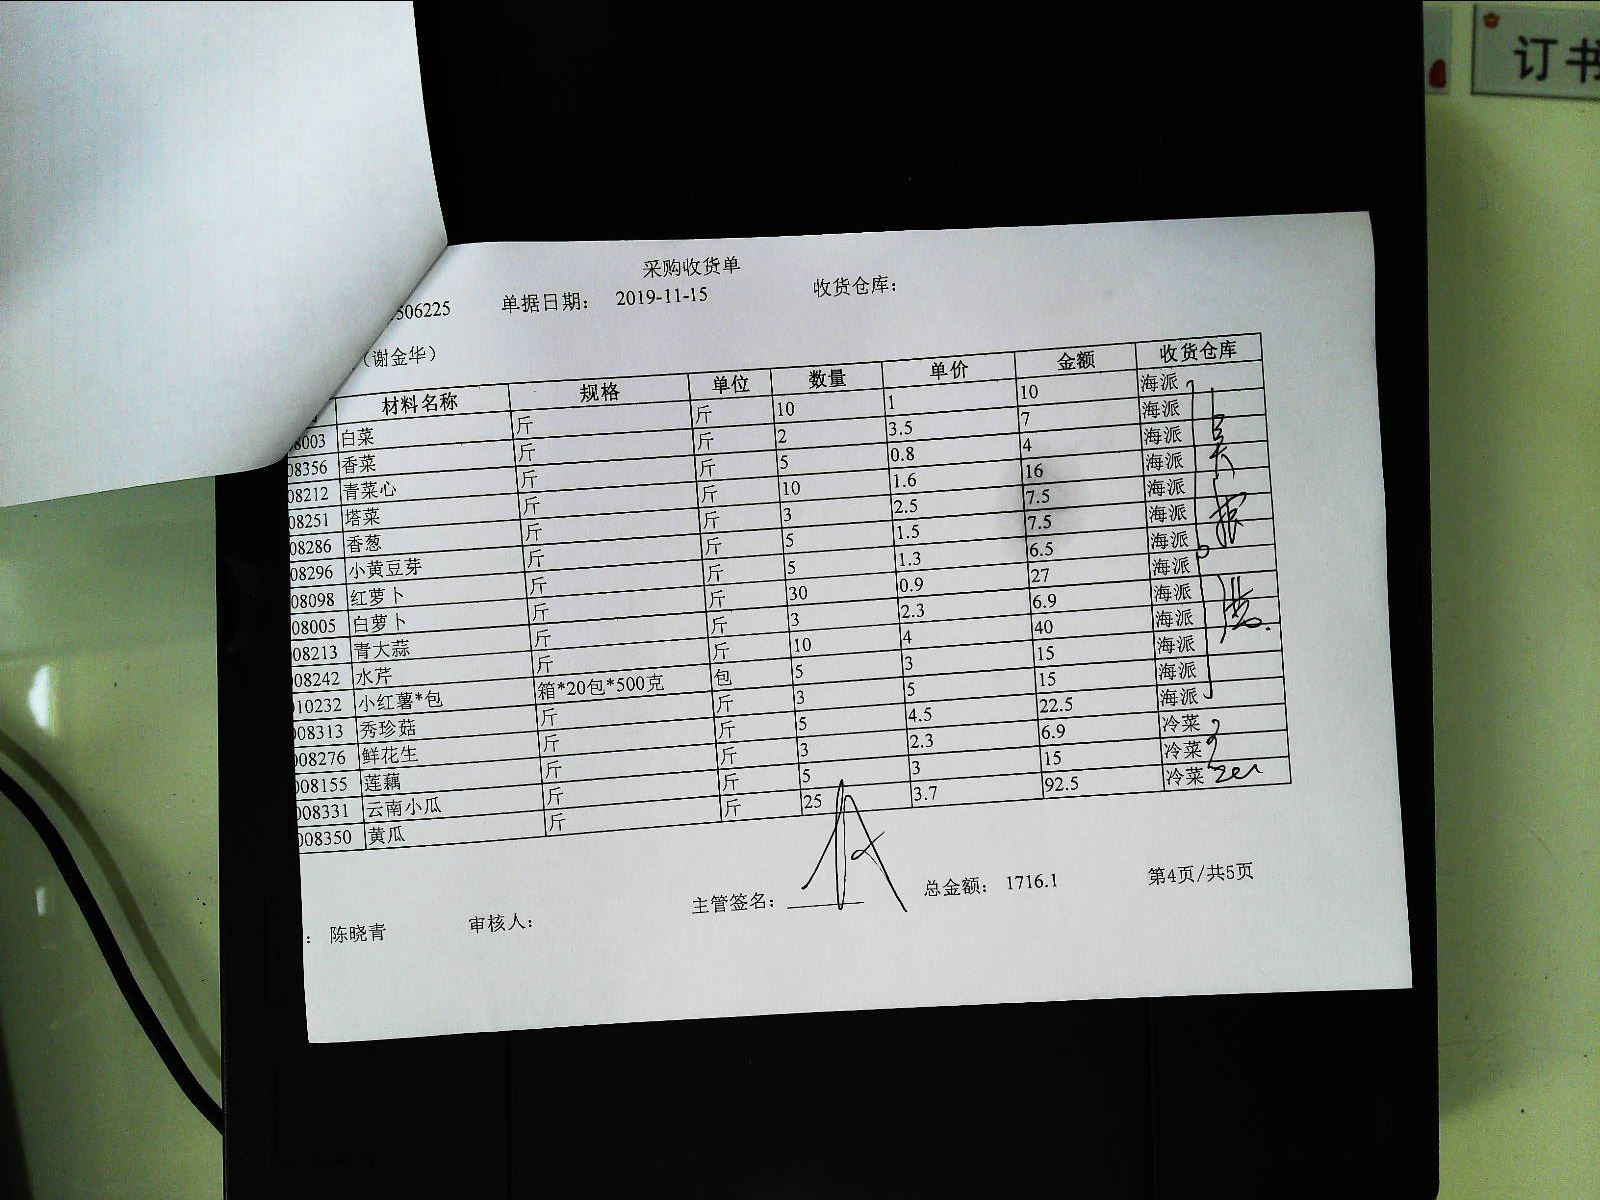 订书
采购收货单
506225 单据日期： 2019-11-15 收货仓库：
（谢金华）
材料名称 规格 单位 数量 单价 金额 收货仓库
8003 白菜 斤 斤 10 1 10 海派
08356 香菜 斤 斤 2 3.5 7 海派
08212 青菜心 斤 斤 5 0.8 4 海派
08251 塔菜 斤 斤 10 1.6 16 海派
08286 香葱 斤 斤 3 2.5 7.5 海派
08296 小黄豆芽 斤 斤 5 1.5 7.5 海派
08098 红萝卜 斤 斤 5 1.3 6.5 海派
08005 白萝卜 斤 斤 30 0.9 27 海派
08213 青大蒜 斤 斤 3 2.3 6.9 海派
08242 水芹 斤 斤 10 4 40 海派
010232 小红薯*包 箱*20包*500克 包 5 3 15 海派
008313 秀珍菇 斤 斤 3 5 15 海派
008276 鲜花生 斤 斤 5 4.5 22.5 海派
008155 莲藕 斤 斤 3 2.3 6.9 冷菜
008331 云南小瓜 斤 斤 5 3 15 冷菜
008350 黄瓜 斤 斤 25 3.7 92.5 冷菜
： 陈晓青 审核人： 主管签名： 总金额： 1716.1 第4页/共5页